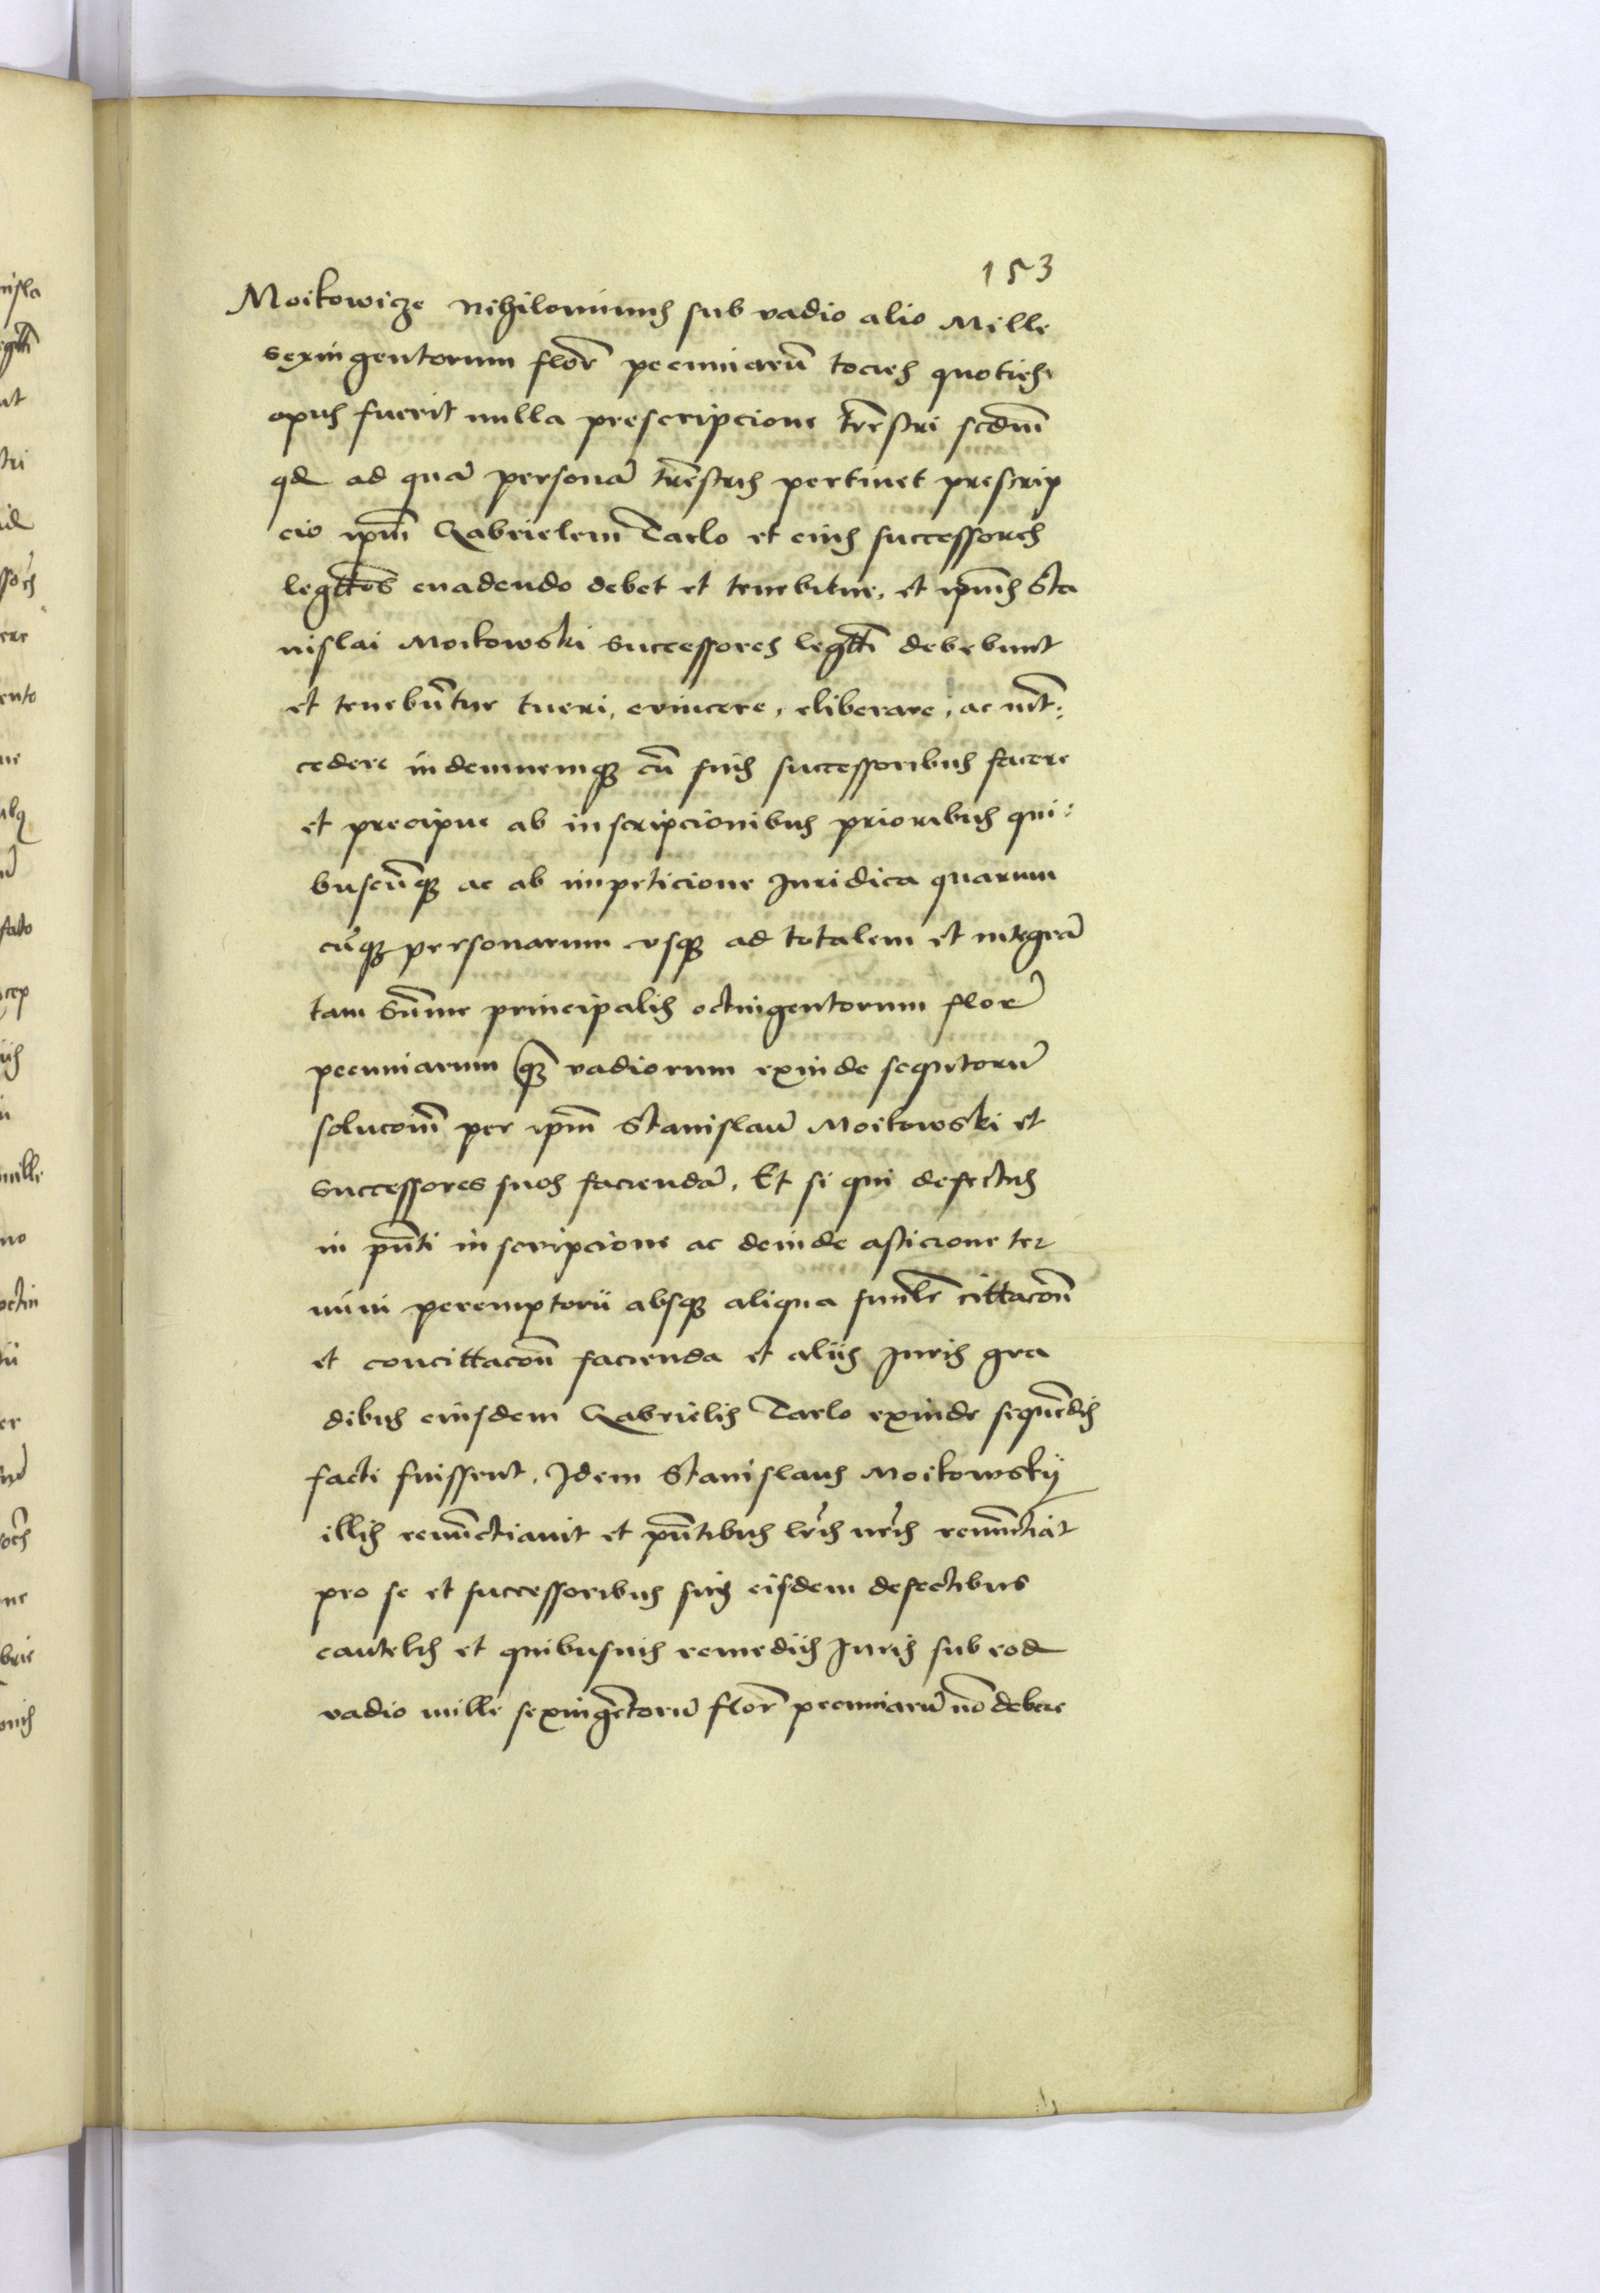 153
Moikowicze nihilominus sub vadio alio Mille
sexingentorum florē pecuniarū tocies quoties
opus fuerit nulla prescripcione trēstri scdm̄
qd ad quā personā trēstris pertinet prescrip
cio ipm̄ Gabrielem Tarlo et eius successores
legtt̄os euadendo debet et tenebitur, et ipiūs Sta
nislai Moikowski successores legtt̄i debebunt
et tenebūtur tueri, evincere, eliberare, ac int̄:
cedere indemnemq3 cū suis successoribus facere
et precipue ab inscripcionibus prioribus qui:
buscūq3 ac ab impeticione Juridica quarum
cūq3 personarum vsq3 ad totalem et integrā
tam sūme principalis octingentorum florē
pecuniarum q̄3 vadiorum exinde sequtorū
solucoīm per ipm̄ Stanislaū Moikowski et
successores suos faciendā. Et si qui defectus
in pn̄ti inscripcione ac deinde asticione ter
mini peremptorii absq3 aliqua simlē cittacōn
et concittacōn facienda et aliis Juris gra
dibus eiusdem Gabrielis Tarlo exinde sequēdis
facti fuissent, Idem Stanislaus Moikowskÿ
illis renūctiauit et pn̄tibus lr̄is nr̄is renūctiat
pro se et successoribus suis eisdem defectibus
cautelis et quibusuis remediis Juris sub eod
vadio mille sexingētorū florē pecuniarū nō debere